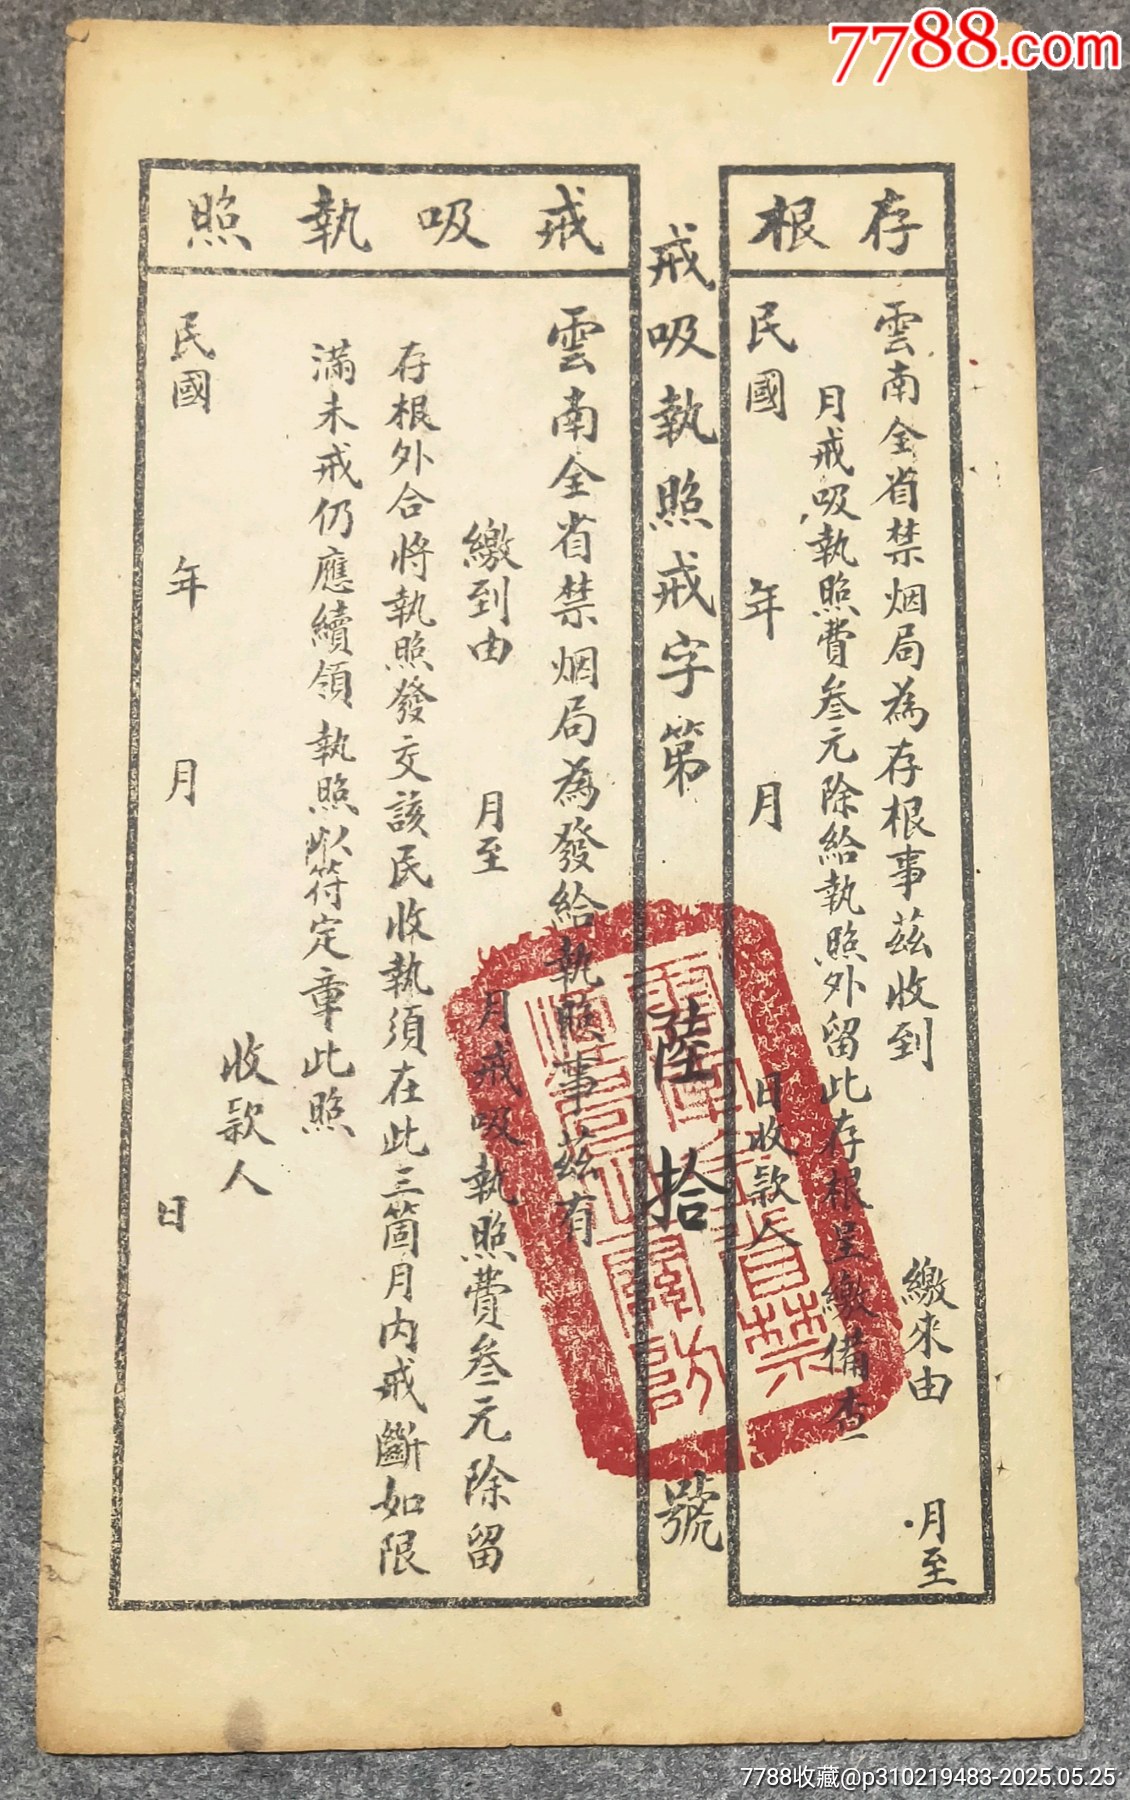 7788.com
存根
雲南全省禁烟局為存根事茲收到 繳來由 月至
月戒吸執照費叁元除給執照外留此存根呈繳備查
民國 年 月 日收款人
戒吸執照戒字第 陸拾 號
戒吸執照
雲南全省禁烟局為發給執照事茲有
繳到由 月至 月戒吸執照費叁元除留
存根外合將執照發交該民收執須在此三箇月內戒斷如限
滿未戒仍應續領執照以符定章此照
收款人
民國 年 月 日
7788收藏@p310219483-2025.05.25